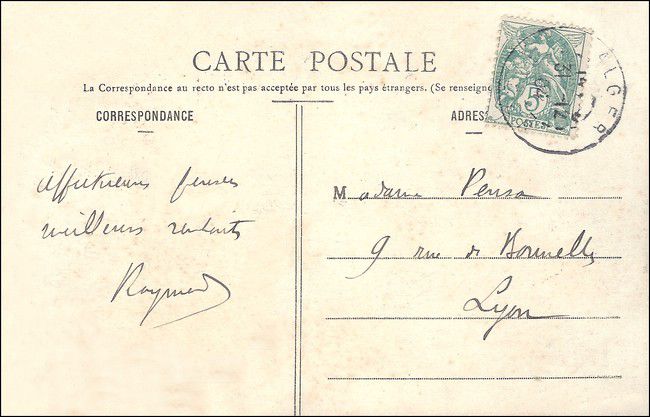 CARTE POSTALE
La Correspondance au recto n'est pas acceptée par tous les pays étrangers. (Se renseigne
CORRESPONDANCE
ADRES
5
POSTES
ALGER
31 12
04
Affectueuses pensées
meilleurs souhaits
Raymond
Madame Pensa
9 rue de Bonnelle
Lyon